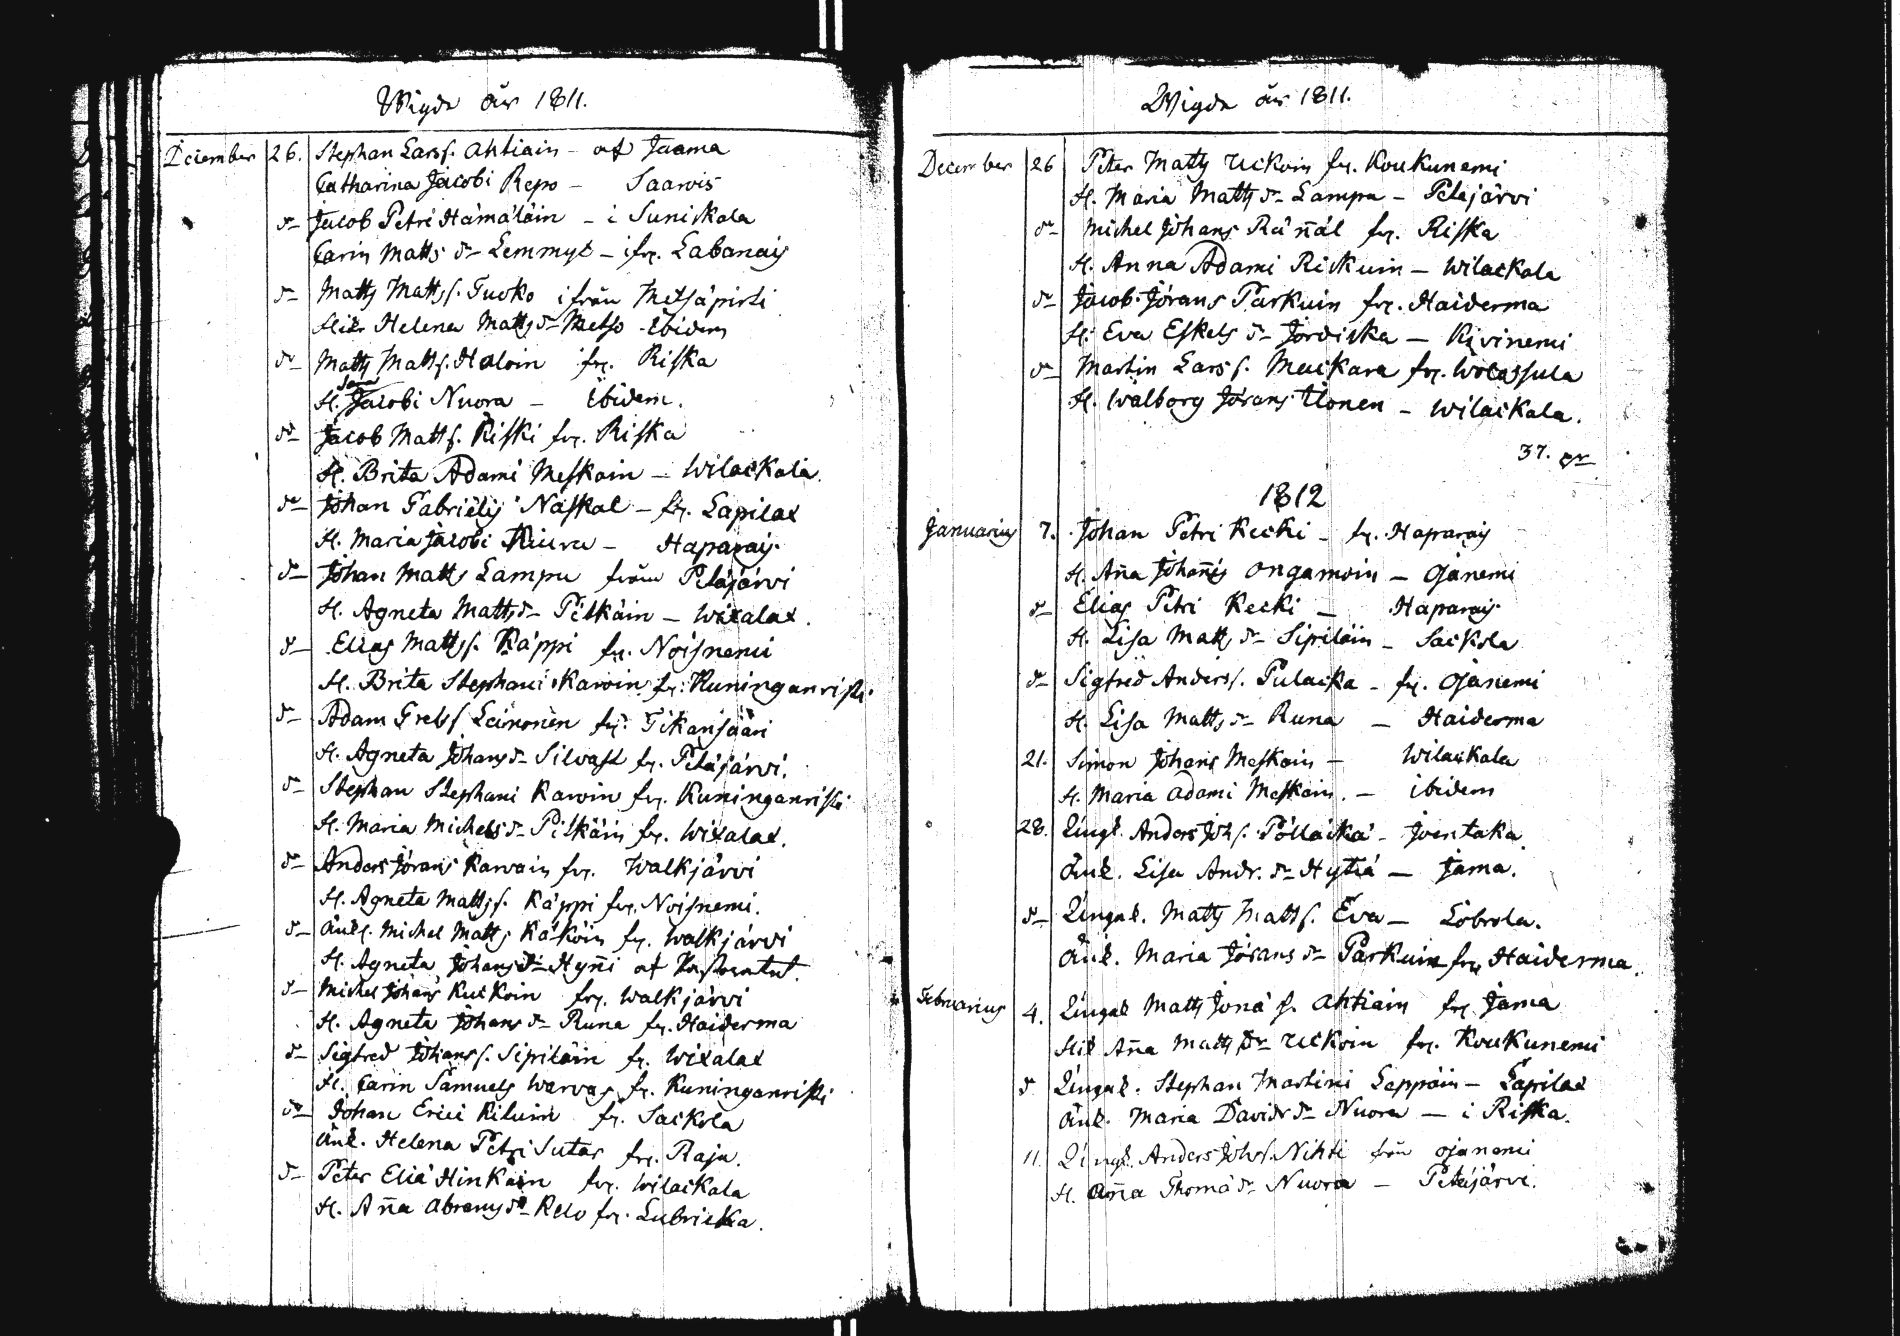 Wigde år 1811.
December 26. Stephan Larss. Ahtiain - af Jaama
Catharina Jacobi Repo - Saarois
d- Jacob Petri Hämäläin - i Suniskala
Carin Matts d- Lemmyt - ifr. Labanais
d- Matts Mattss. Tuoko ifrån Metsäpirti
Hel. Helena Matts d- Metso Ebidem
d- Matts Matts. Haloin fr. Riska
H. Jacobi Nuora - Ebidem.
d- Jacob Matts. Riski fr. Riska
H. Brita Adami Meskain - Wilackala.
d- Johan Gabrielis Naskal - fr. Lapilax
H. Maria Jacobi Kiuru - Haparais.
d- Johan Matts Lampu från Petäjärvi
H. Agneta Matts d- Pitkäin - Wixalax.
d- Elias Mattss. Käppi fr. Noisnemi
H. Brita Stephani Karvin fr. Kuninganristi.
d- Adam Grels. Leinonen fr. Tikansaari
H. Agneta Johans d- Silvast fr. Petäjärvi.
d- Stephan Stephani Karvin fr. Kuninganristi
H. Maria Michels d- Pitkäin fr. Wixalax.
d- Anders Jörans Karvain fr. Walkjärvi
H. Agneta Mattss. Käppi fr. Noisnemi.
d- Änkl. Michel Matts Käköin fr. Walkjärvi
H. Agneta Johans d- Hyñi af
d- Michel Johans Kuckoin fr. Walkjärvi
H. Agneta Johans d- Runa fr. Haiderma
d- Sigfred Johanss. Sipiläin fr. Wixalax
H. Carin Samuels Warvas fr. Kuninganristi
d- Johan Erici Kiluin fr. Sackola
Änk. Helena Petri Sutar fr. Raju.
d- Peter Eliä Hinkain fr. Wilackala
H. Aña Abrams d- Relo fr. Lubricka.
Wigde år 1811.
December 26 Peter Matts Uckoin fr. Koukunemi
H. Maria Matts d- Lampu - Petäjärvi
d- Michel Johans Räñäl fr. Riska
H. Anna Adami Rickuin - Wilackala
d- Jacob Jörans Parkuin fr. Haiderma
H. Eva Eskels d- Jordiska - Kivinemi
d- Martin Larss. Muckara fr. Wolassula
H. Walborg Jörans Ilonen - Wilackala.
37. pr
1812
Januarius 7. Johan Petri Kecki - fr. Haparais
H. Aña Johañis Ongamoin - Ojanemi
d- Elias Petri Kecki - Haparais.
H. Lisa Matts d- Sipiläin - Sackola
d- Sigfred Anderss. Pulacka - fr. Ojanemi
H. Lisa Matts d- Runa - Haiderma
21. Simon Johans Meskain - Wilackala
H. Maria Adami Meskain. - ibidem
28. Üngl. Anders Joh.s. Pölläckä - Joentaka.
Änk. Lisa Andr. d- Hytiä - Jama.
d- Üngkl. Matts Matts. Eva - Lobrola.
Änk. Maria Jörans d- Parkuin fr. Haiderma.
Februarius 4. Üngkl Matts Jonä s. Ahtiain fr. Jama
Hel Aña Matts d- Uckoin fr. Koukunemi
d Üngkl. Stephan Martini Lappäin - Lapilax
Änk. Maria Davids d- Nuora - i Riska.
11. Üngl. Anders Johs. Nihti från Ojanemi
H. Aña Thomä d- Nuora - Petäjärvi.